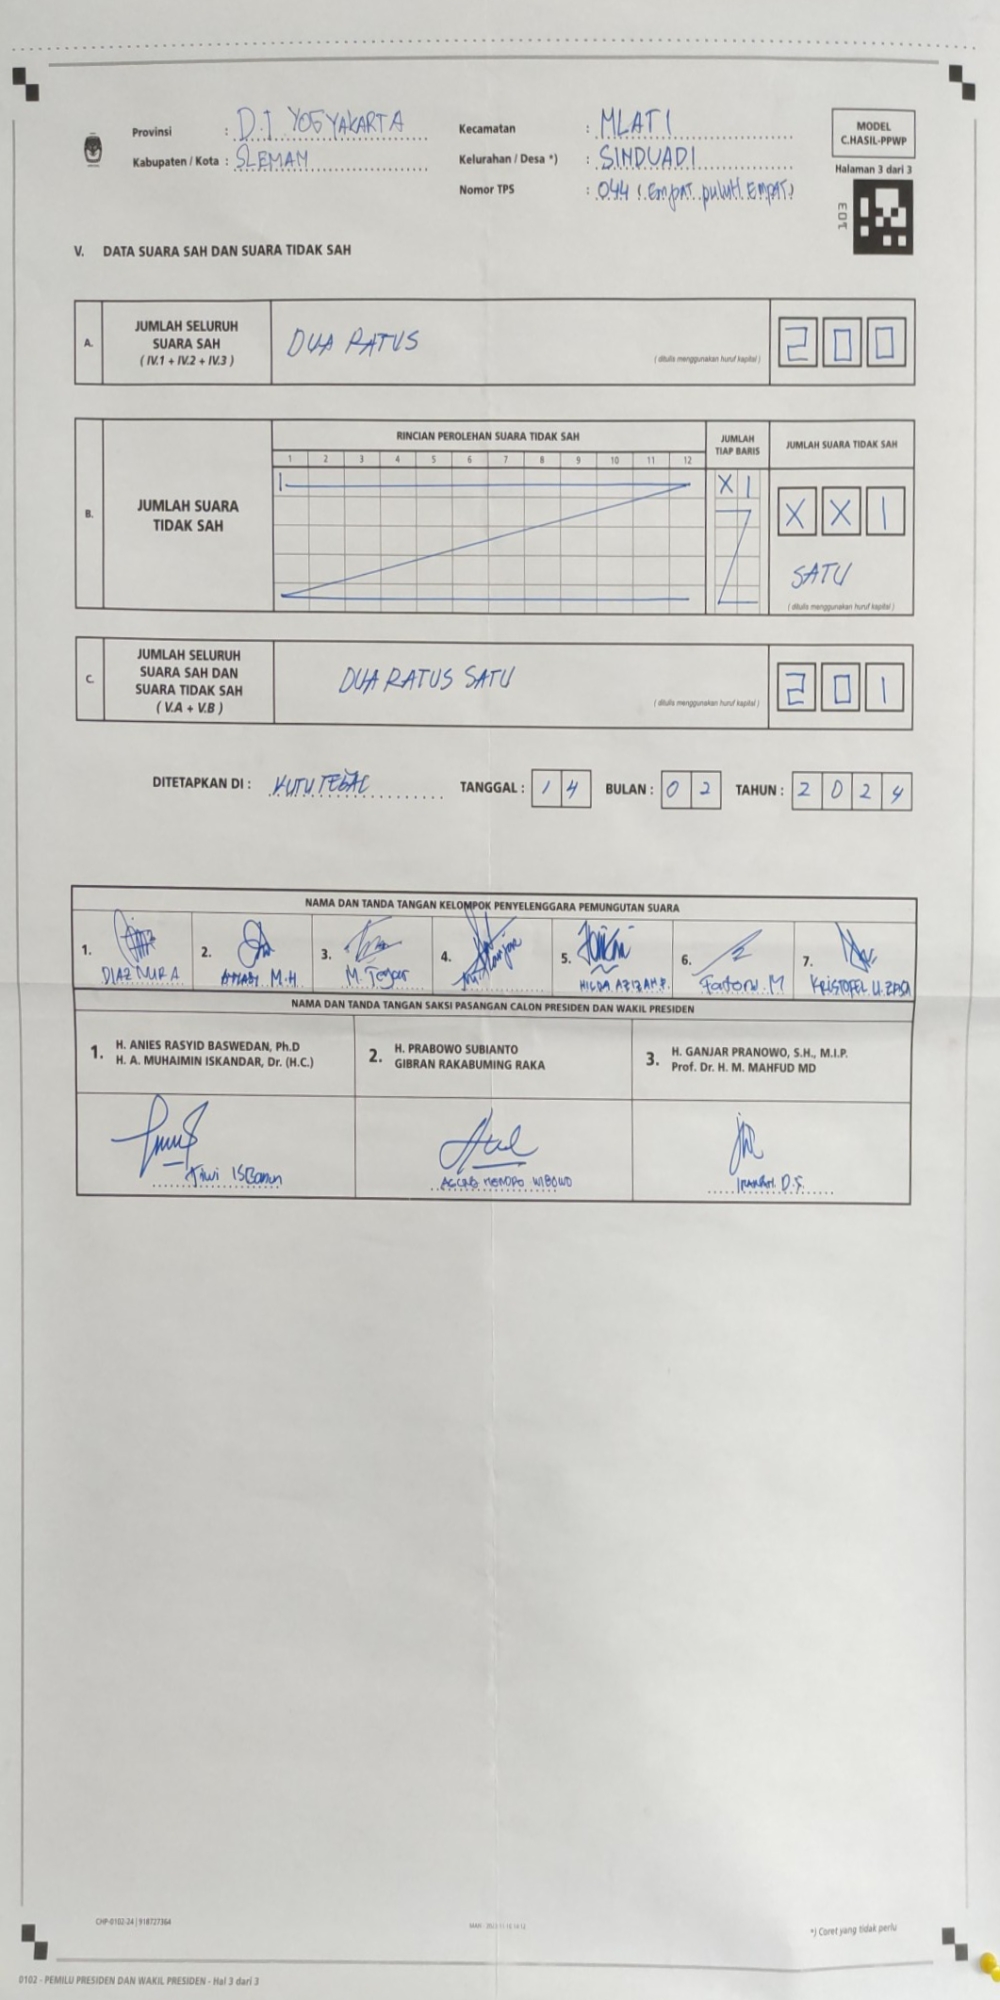 Provinsi : D.I YOGYAKARTA
Kabupaten / Kota : SLEMAN
Kecamatan : MLATI
Kelurahan / Desa *) : SINDUADI
Nomor TPS : 044 (Empat puluh Empat)
MODEL
C.HASIL-PPWP
Halaman 3 dari 3
E01
V. DATA SUARA SAH DAN SUARA TIDAK SAH
A. JUMLAH SELURUH
SUARA SAH
( IV.1 + IV.2 + IV.3 )
DUA RATUS
( ditulis menggunakan huruf kapital )
2 0 0
B. JUMLAH SUARA
TIDAK SAH
RINCIAN PEROLEHAN SUARA TIDAK SAH
1 2 3 4 5 6 7 8 9 10 11 12
JUMLAH
TIAP BARIS
X 1
JUMLAH SUARA TIDAK SAH
X X 1
SATU
( ditulis menggunakan huruf kapital )
C. JUMLAH SELURUH
SUARA SAH DAN
SUARA TIDAK SAH
( V.A + V.B )
DUA RATUS SATU
( ditulis menggunakan huruf kapital )
2 0 1
DITETAPKAN DI : KUTU TEGAL TANGGAL : 1 4 BULAN : 0 2 TAHUN : 2 0 2 4
NAMA DAN TANDA TANGAN KELOMPOK PENYELENGGARA PEMUNGUTAN SUARA
1. DIAZ NUR A
2. M.H
3. M. Tegar
4.
5. HILDA AZIZAH F.
6. M
7. KRISTOFEL
NAMA DAN TANDA TANGAN SAKSI PASANGAN CALON PRESIDEN DAN WAKIL PRESIDEN
1. H. ANIES RASYID BASWEDAN, Ph.D
H. A. MUHAIMIN ISKANDAR, Dr. (H.C.)
2. H. PRABOWO SUBIANTO
GIBRAN RAKABUMING RAKA
3. H. GANJAR PRANOWO, S.H., M.I.P.
Prof. Dr. H. M. MAHFUD MD
WIBOWO
D.S.
CHP-0102-24 | 918727364
*) Coret yang tidak perlu
0102 - PEMILU PRESIDEN DAN WAKIL PRESIDEN - Hal 3 dari 3